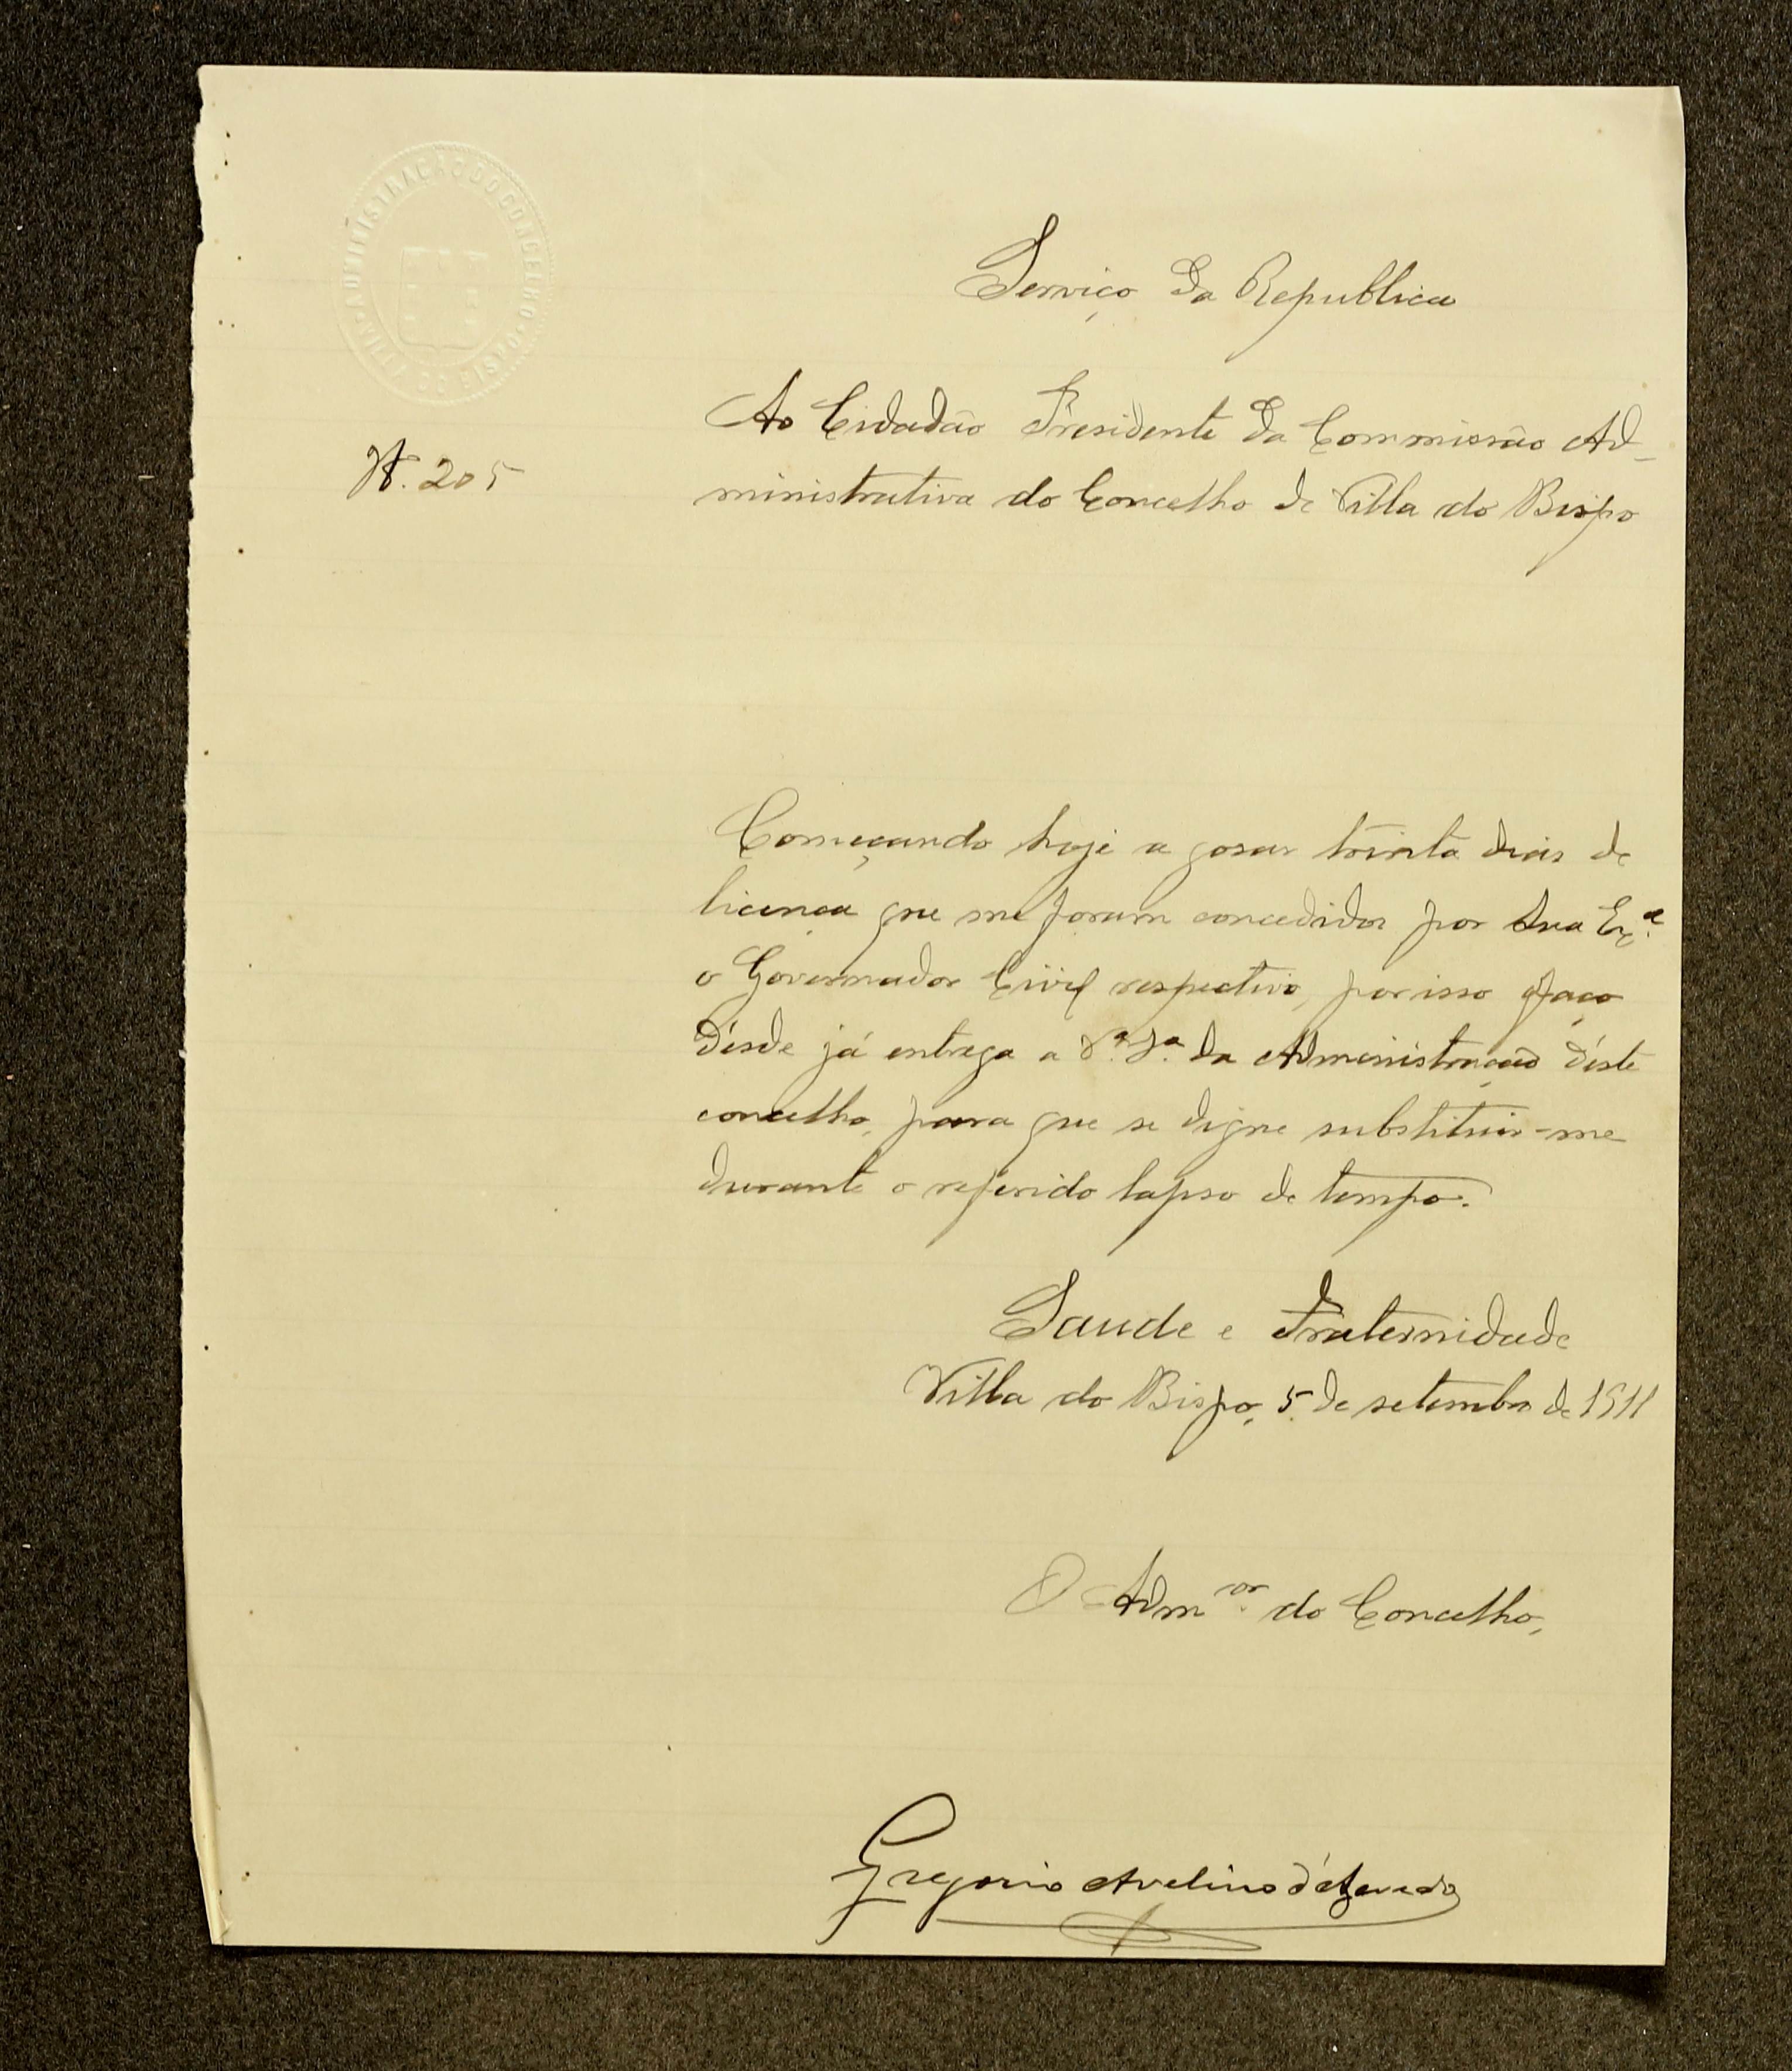 ADMINISTRAÇÃO DO CONCELHO
VILLA DO BISPO
Serviço da Republica
Ao Cidadão Presidente da Commissão Ad-
ministrativa do Concelho de Villa do Bispo
N. 205
Começando hoje a gosar trinta dias de
licença que me foram concedidos por Sua Exª.
o Governador Civil respectivo, por isso faço
désde já entrega a Vª. Sª. da Administração déste
concelho, para que se digne substituir-me
durante o referido lapso de tempo.
Saude e Fraternidade
Villa do Bispo, 5 de setembro de 1911
O Admor. do Concelho,
Gregorio Avelino d'Azevedo